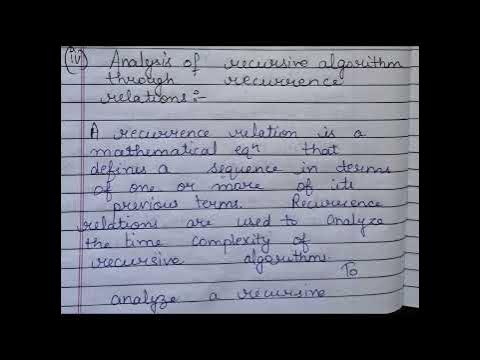 (iv) Analysis of recursive algorithm
through recurrence
relations:-
A recurrence relation is a
mathematical eqn that
defines a sequence in terms
of one or more of its
previous terms. Recurrence
relations are used to analyze
the time complexity of
recursive algorithms.
To
analyze a recursive